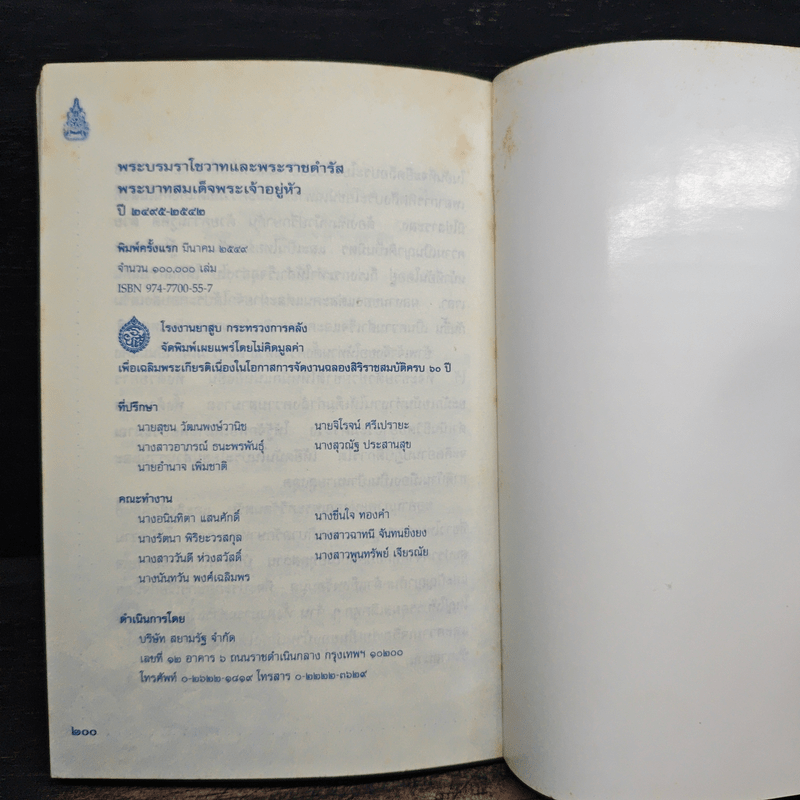 พระบรมราโชวาทและพระราชดำรัส
พระบาทสมเด็จพระเจ้าอยู่หัว
ปี ๒๔๙๕-๒๕๔๒
พิมพ์ครั้งแรก มีนาคม ๒๕๔๙
จำนวน ๑๐๐,๐๐๐ เล่ม
ISBN 974-7700-55-7
โรงงานยาสูบ กระทรวงการคลัง
จัดพิมพ์เผยแพร่โดยไม่คิดมูลค่า
เพื่อเฉลิมพระเกียรติเนื่องในโอกาสการจัดงานฉลองสิริราชสมบัติครบ ๖๐ ปี
ที่ปรึกษา
นายสุชน วัฒนพงษ์วานิช นายจิโรจน์ ศรีเปรายะ
นางสาวอาภรณ์ ธนะพรพันธุ์ นางสุวณัฐ ประสานสุข
นายอำนาจ เพิ่มชาติ
คณะทำงาน
นางอนินทิตา แสนศักดิ์ นางชื่นใจ ทองคำ
นางรัตนา พิริยะวรสกุล นางสาวฉาทนี จันทนยิ่งยง
นางสาววันดี ห่วงสวัสดิ์ นางสาวพูนทรัพย์ เจียรณัย
นางนันทวัน พงค์เฉลิมพร
ดำเนินการโดย
บริษัท สยามรัฐ จำกัด
เลขที่ ๑๒ อาคาร ๖ ถนนราชดำเนินกลาง กรุงเทพฯ ๑๐๒๐๐
โทรศัพท์ ๐-๒๖๒๒-๑๘๑๙ โทรสาร ๐-๒๒๒๒-๓๖๒๙
๒๐๐